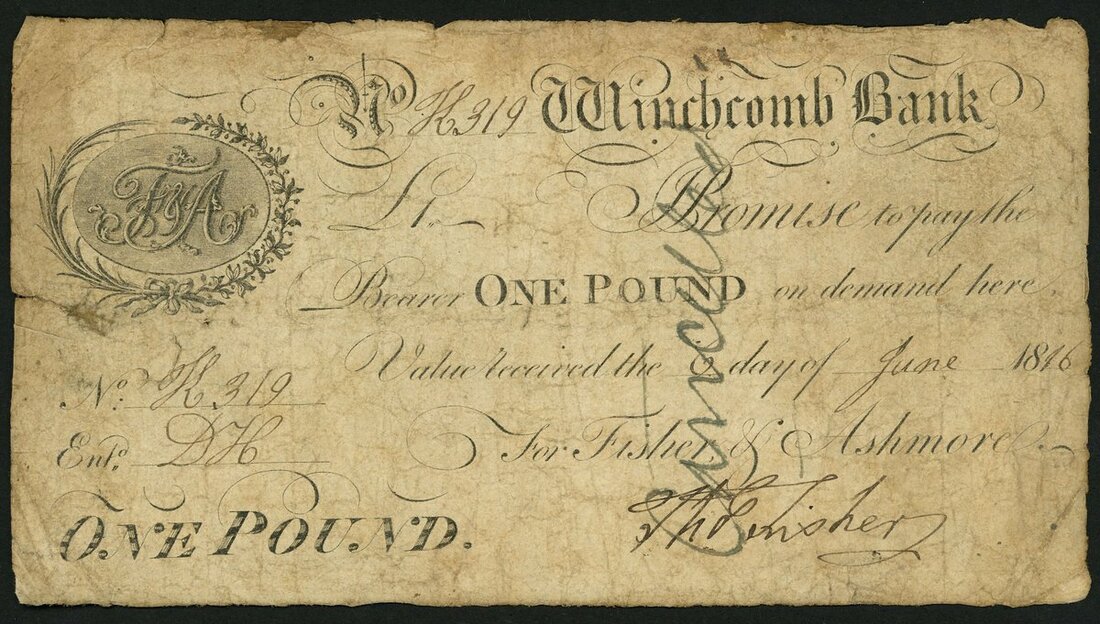 No K319 Winchcomb Bank
F&A
£1.- I Promise to pay the
Bearer ONE POUND on demand here.
Value received the day of June 1816
No. K 319
Entd. DH
For Fisher & Ashmore.-
ONE POUND.
Thos Fisher
Cancelled